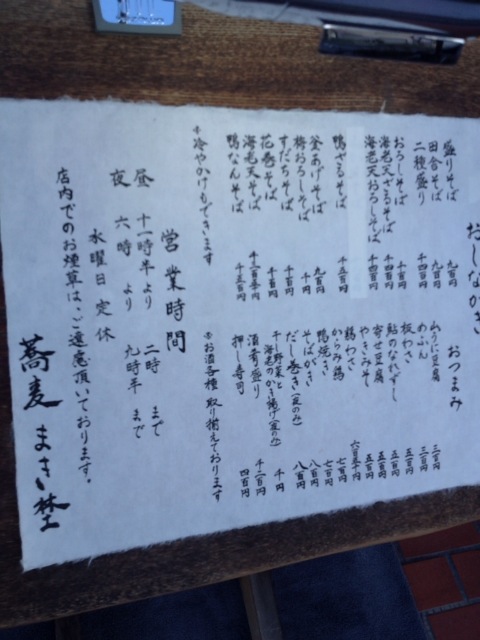 おしながき
盛りそば 九百円
田舎そば 九百円
二種盛り 千四百円
おろしそば 千百円
海老天ざるそば 千四百円
海老天おろしそば 千四百円
鴨ざるそば 千五百円
釜あげそば 九百円
梅おろしそば 千百円
すだちそば 千百円
花巻そば 千百円
海老天そば
鴨なんそば 千五百円
*冷やかけもできます
おつまみ
山うに豆腐 三百円
めふん 三百円
板わさ 五百円
鮎のなれずし 五百円
寄せ豆腐 五百円
やきみそ 五百円
鶏わさ 六百五十円
からみ鶏 七百円
鴨焼き 七百円
そばがき 八百円
だし巻き(夜のみ) 八百円
千し野菜と海老のかき揚げ(夜のみ) 千円
酒肴盛り 千二百円
押し寿司 四百円
*お酒各種取り揃えております
営業時間
昼 十一時半より 二時 まで
夜 六時 より 九時半 まで
水曜日 定休
店内でのお煙草は、ご遠慮頂いております。
蕎麦 まさ埜